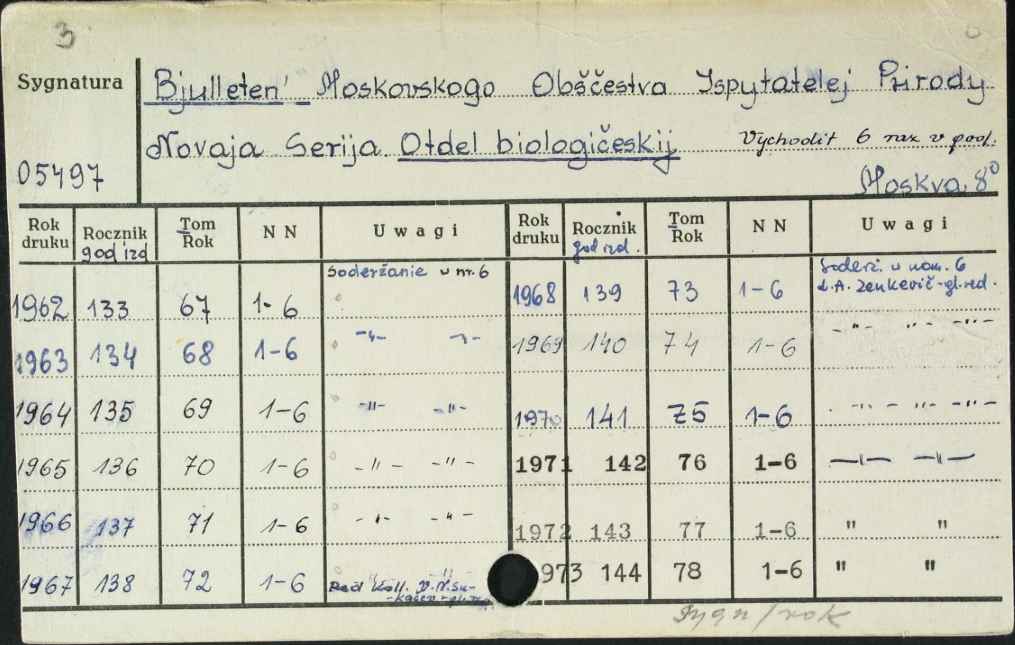 3
Sygnatura
05497
Bjulleten' Moskovskogo Obščestva Ispytatelej Prirody
Novaja Serija Otdel biologičeskij Vychodit 6 raz v god.
Moskva. 8°
Rok druku Rocznik god izd Tom Rok N N Uwagi Rok druku Rocznik god izd. Tom Rok N N Uwagi
1962 133 67 1-6 Soderžanie w nr. 6
1963 134 68 1-6 -"- -"-
1964 135 69 1-6 -"- -"-
1965 136 70 1-6 -"- -"-
1966 137 71 1-6 -"- -"-
1967 138 72 1-6 Red Koll.
1968 139 73 1-6 Soderž. w nom. 6
L.A. Zenkevič-gl.red.
1969 140 74 1-6 -"- "- -"-
1970 141 75 1-6 -"- "- -"-
1971 142 76 1-6 -"- -"-
1972 143 77 1-6 " "
973 144 78 1-6 " "
Sygn/rok